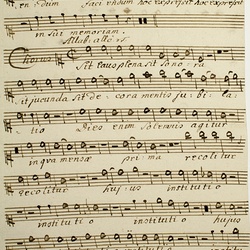 en dum Faci endum hoc expressit hoc expressit
in sui memoriam.
Chorus Sit laus plena sit sono ra
sit jucunda sit de cora mentis ju bi la
tio Dies enim Solemnis agitur
in qua mensæ pri ma recolitur
recolitur hujus instituti o
instituti o instituti o hujus
instituti o instituti o